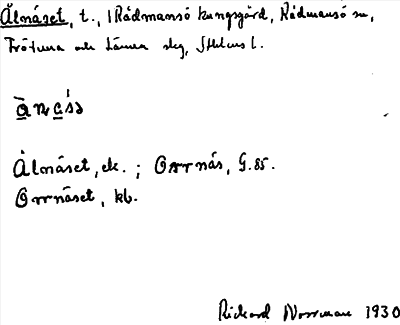 Ålnäset, t., /Rådmansö kungsgård, Rådmansö sn,
Frötuna och Länna skg, Sthlms l.
Ålnäset, ek. ; Orrnäs, G.85.
Orrnäset, kb.
Rickard Norrman 1930